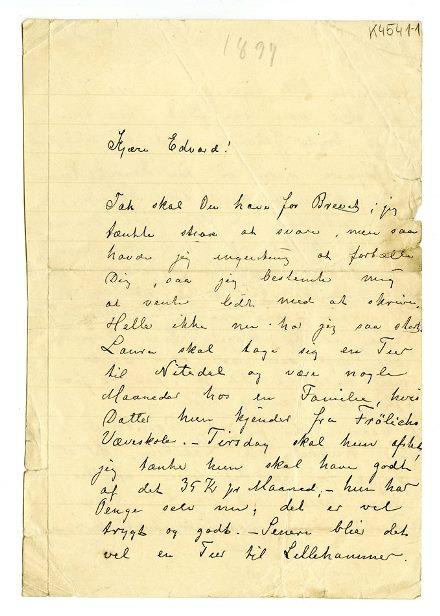 K4541-1
1897
Kjære Edvard!
Tak skal Du have for Brevet; jeg
tænkte strax at svare, men saa
havde jeg ingenting at fortælle
Dig, saa jeg bestemte mig
at vente lidt med at skrive.
Heller ikke nu har jeg saa stort.
Laura skal tage sig en Tur
til Nitedal og være nogle
Maaneder hos en Familie, hvis
Datter hun kjender fra Frölichs
Væveskole. – Tirsdag skal hun afsted,
jeg tænke hun skal have godt
af det 35 Kr pr Maaned, – hun har
Penge selv nu; det er vel
trygt og godt. – Senere blir det
vel en Tur til Lillehammer.